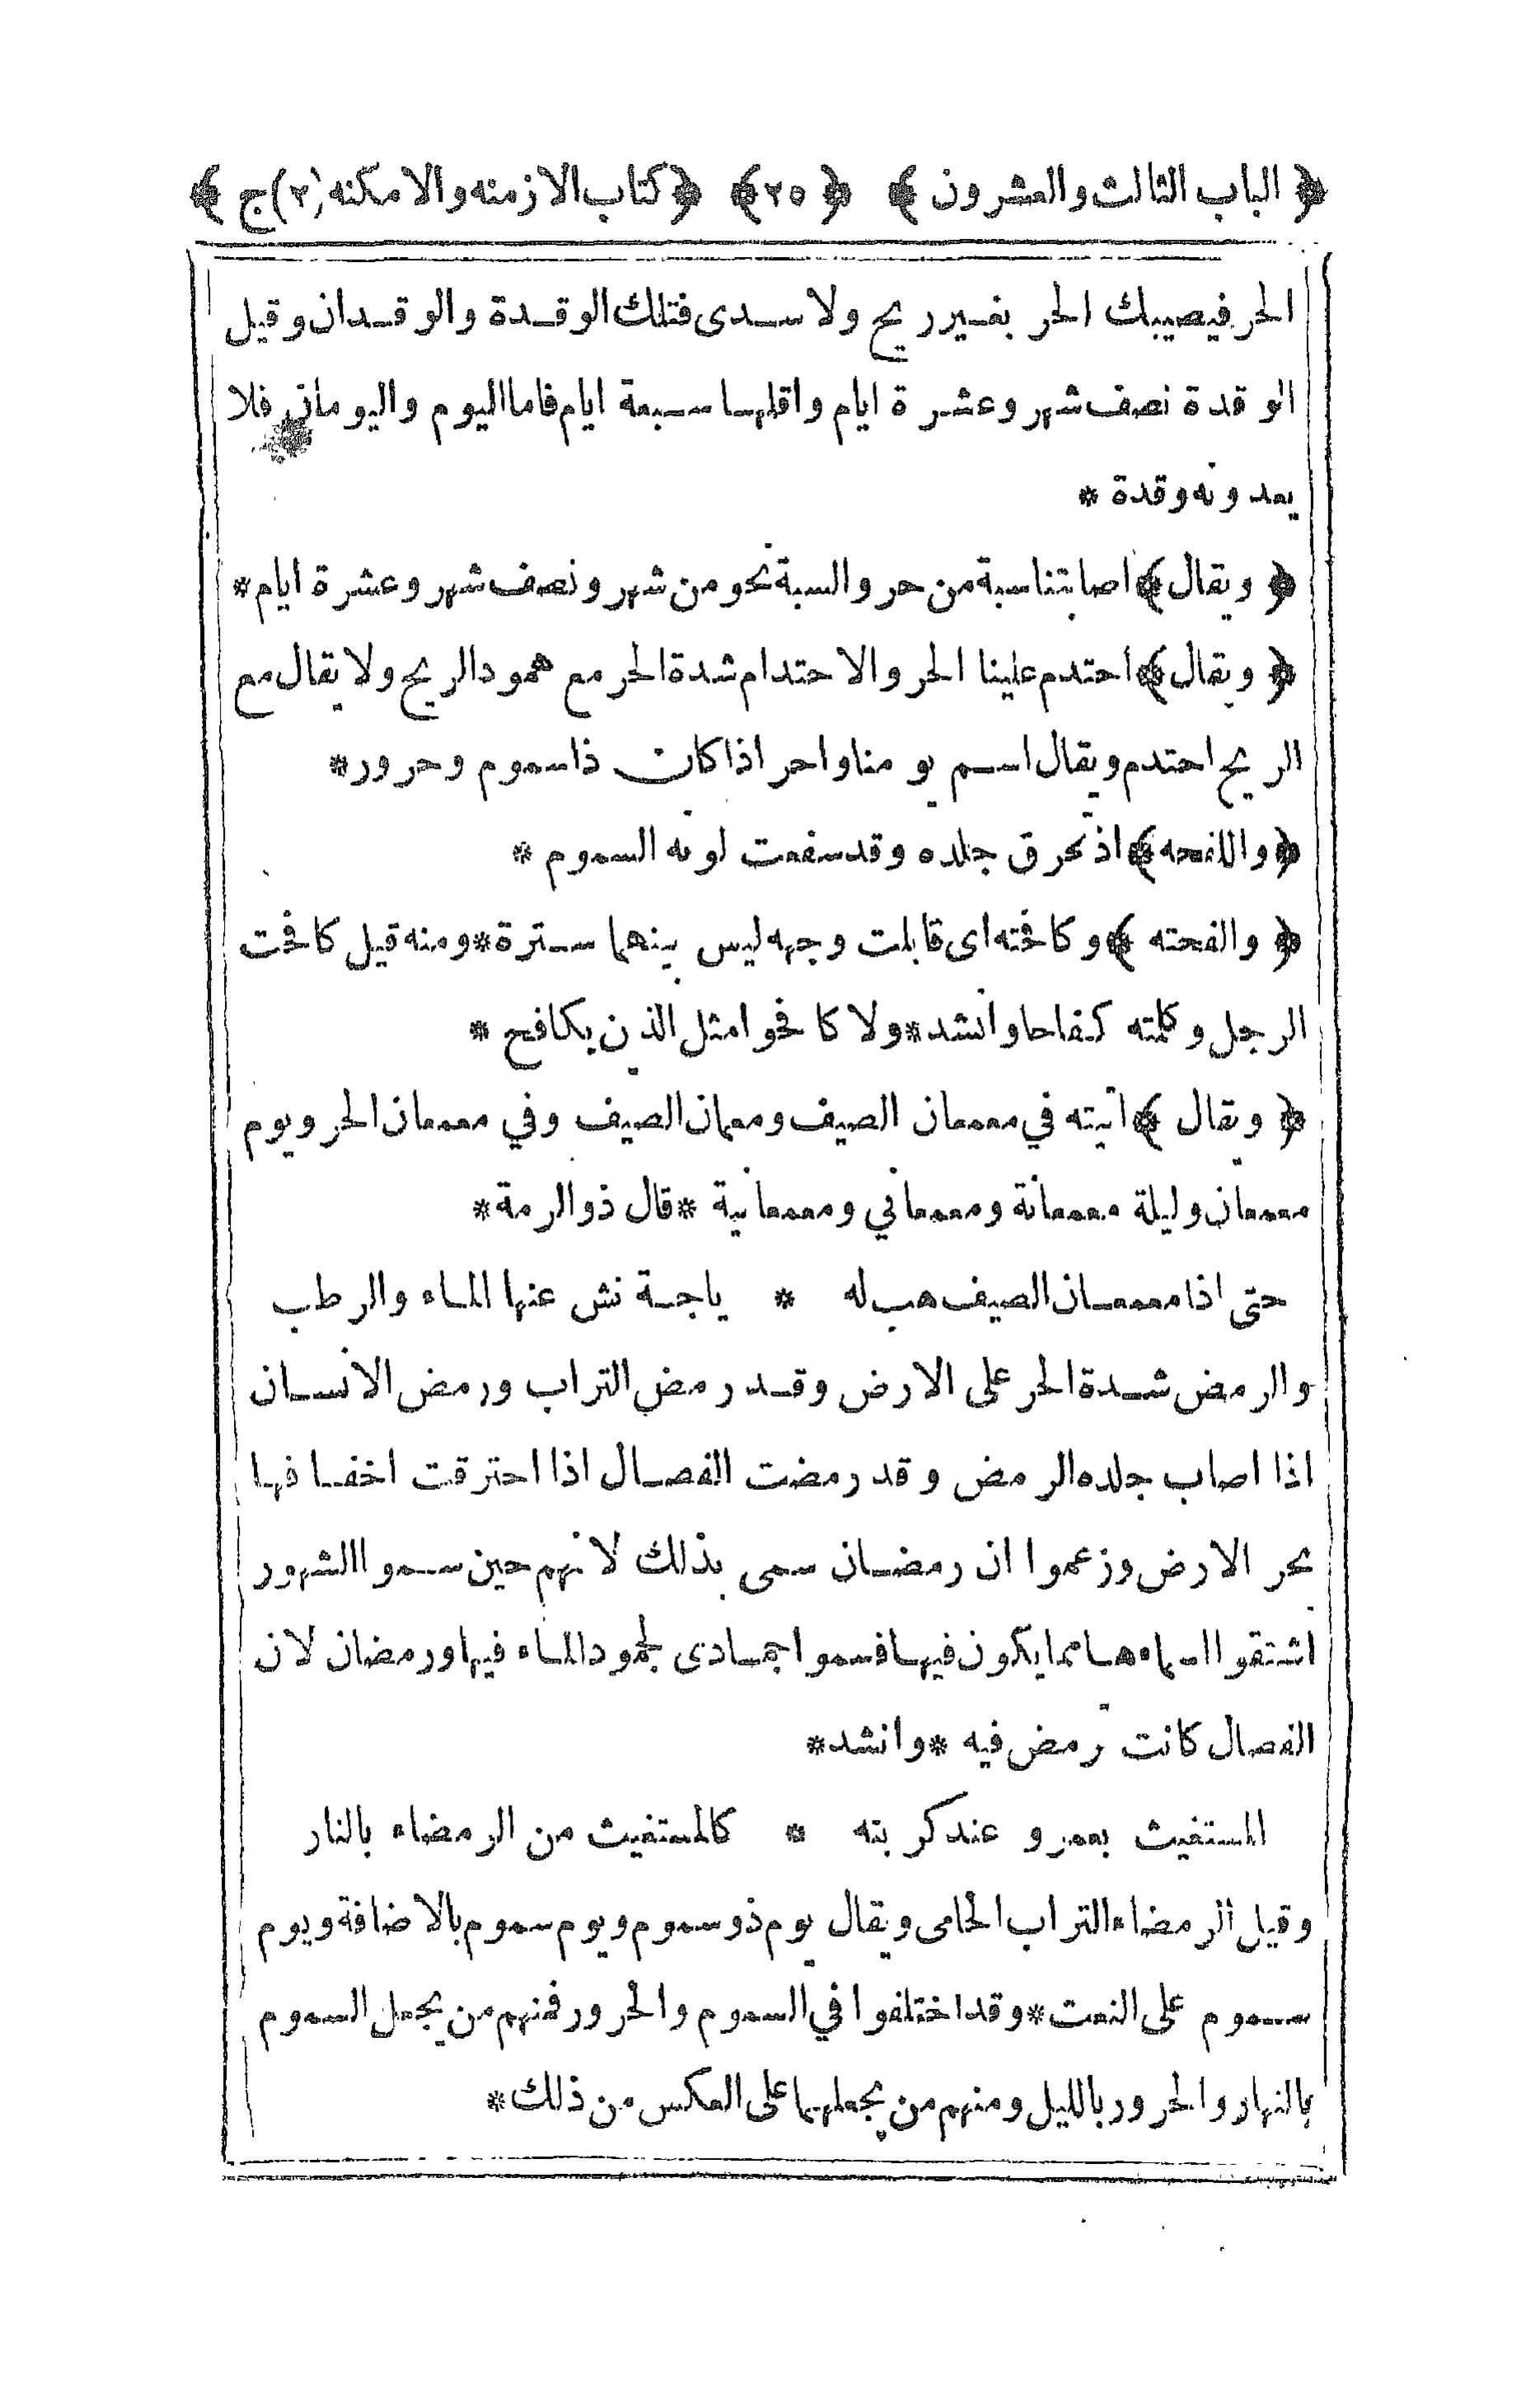 ﴿ الباب الثالث والعشرون ﴾ ﴿ ٢٥ ﴾ ﴿ كتاب الازمنه والامكنه (٢) ج ﴾
الحر فيصيبك الحر بغير ريح ولا سدى فتلك الوقدة والوقدان وقيل
الوقدة نصف شهر وعشرة ايام واقلها سبعة ايام فاما اليوم واليومان فلا
يعدونه وقدة *
﴿ ويقال ﴾ اصابتنا سبة من حر والسبة نحو من شهر ونصف شهر وعشرة ايام *
﴿ ويقال ﴾ احتدم علينا الحر والاحتدام شدة الحر مع همود الريح ولا يقال مع
الريح احتدم ويقال اسم يومنا واحر اذا كان ذا سموم وحرور *
﴿ واللفحه ﴾ اذ تحرق جلده وقد سفعت لونه السموم *
﴿ والفحته ﴾ وكافحته اى قابلت وجهه ليس بينهما سترة * ومنه قيل كافحت
الرجل وكلمته كفاحا وانشد * ولا كافحوا مثل الذين يكافح *
﴿ ويقال ﴾ اتيته في معمعان الصيف ومعمان الصيف وفي معمعان الحر ويوم
معمعان وليلة معمعانة ومعمعاني ومعمعانية * قال ذوالرمة *
حتى اذا معمعان الصيف هب له * ياجة نش عنها الماء والرطب
والرمض شدة الحر على الارض وقد رمض التراب ورمض الانسان
اذا اصاب جلده الرمض وقد رمضت الفصال اذا احترقت اخفافها
بحر الارض وزعموا ان رمضان سمى بذلك لانهم حين سموا الشهور
اشتقوا اسماءها مما يكون فيها فسموا جمادى لجمود الماء فيها ورمضان لان
الفصال كانت ترمض فيه * وانشد *
المستغيث بعمرو عند كربته * كالمستغيث من الرمضاء بالنار
وقيل الرمضاء التراب الحامى ويقال يوم ذو سموم ويوم سموم بالاضافة ويوم
سموم على النعت * وقد اختلفوا في السموم والحرور فمنهم من يجعل السموم
بالنهار والحرور بالليل ومنهم من يجعلهما على العكس من ذلك *